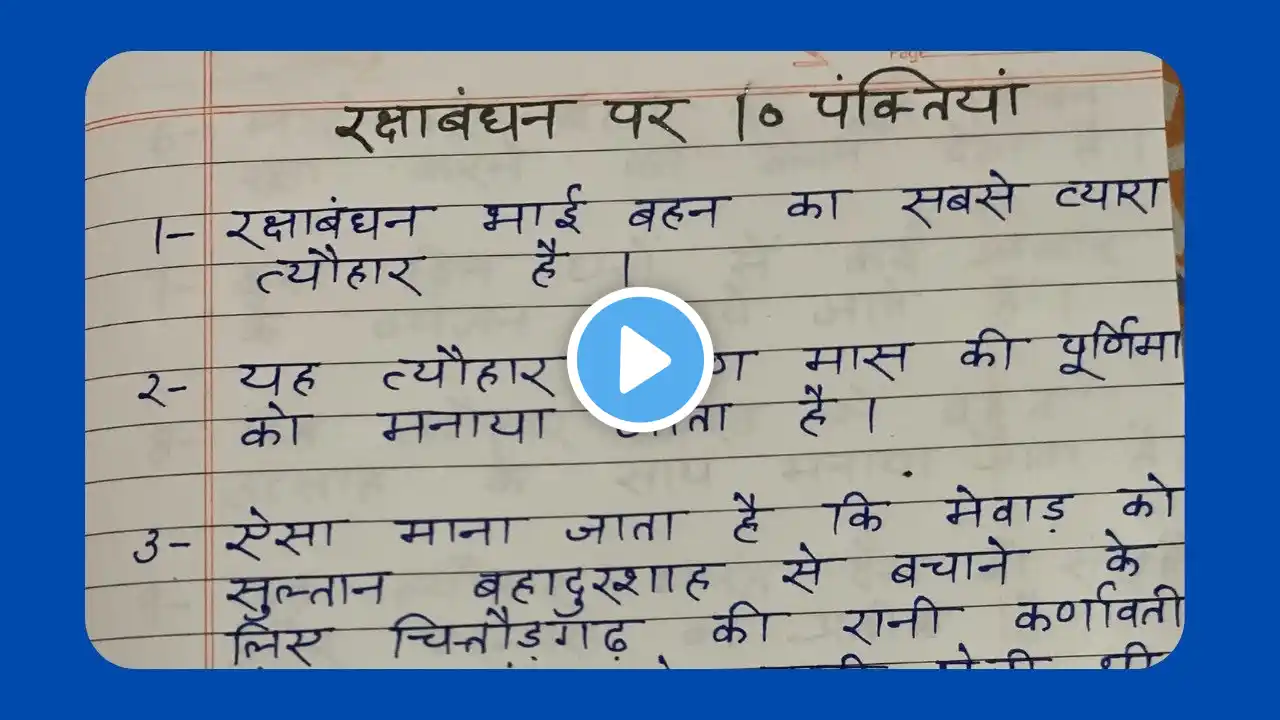 Page
रक्षाबंधन पर 10 पंक्तियां
1- रक्षाबंधन भाई बहन का सबसे प्यारा
त्यौहार है ।
२- यह त्यौहार मास की पूर्णिमा
को मनाया जाता है ।
3- ऐसा माना जाता है कि मेवाड़ को
सुल्तान बहादुरशाह से बचाने के
लिए चित्तौड़गढ़ की रानी कर्णावती